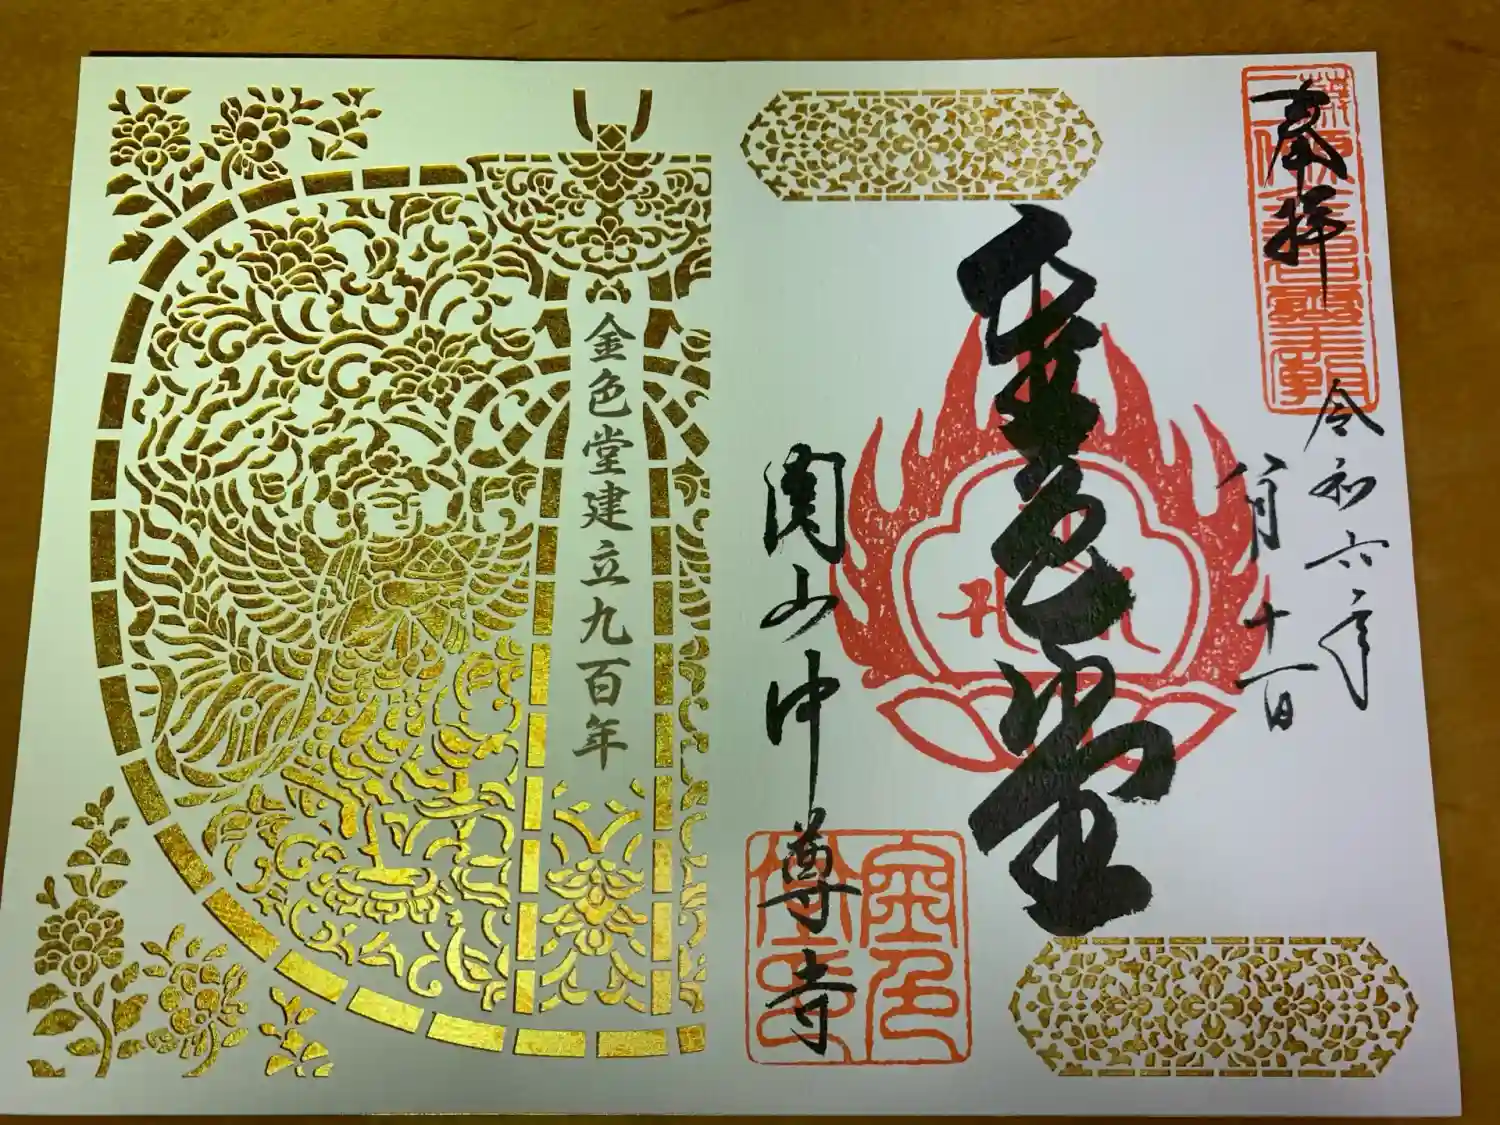 奉拝
令和六年
八月十一日
金色堂
関山中尊寺
金色堂建立九百年